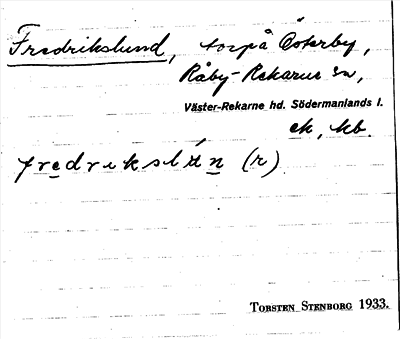 Fredrikslund, torp å Österby,
Råby-Rekarne sn,
Väster-Rekarne hd. Södermanlands l.
ek, kb.
(r)
TORSTEN STENBORG 1933.